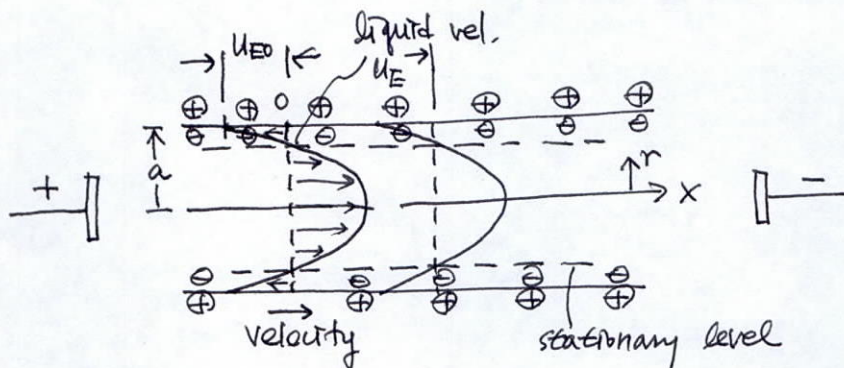 liquid vel.
UEO
UE
O
⊕ ⊕ ⊕ ⊕ ⊕ ⊕ ⊕
⊖ ⊖ ⊖ ⊖ ⊖ ⊖ ⊖
a
r
+
x
−
⊖ ⊖ ⊖ ⊖ ⊖
⊕ ⊕ ⊕ ⊕ ⊕
velocity
stationary level